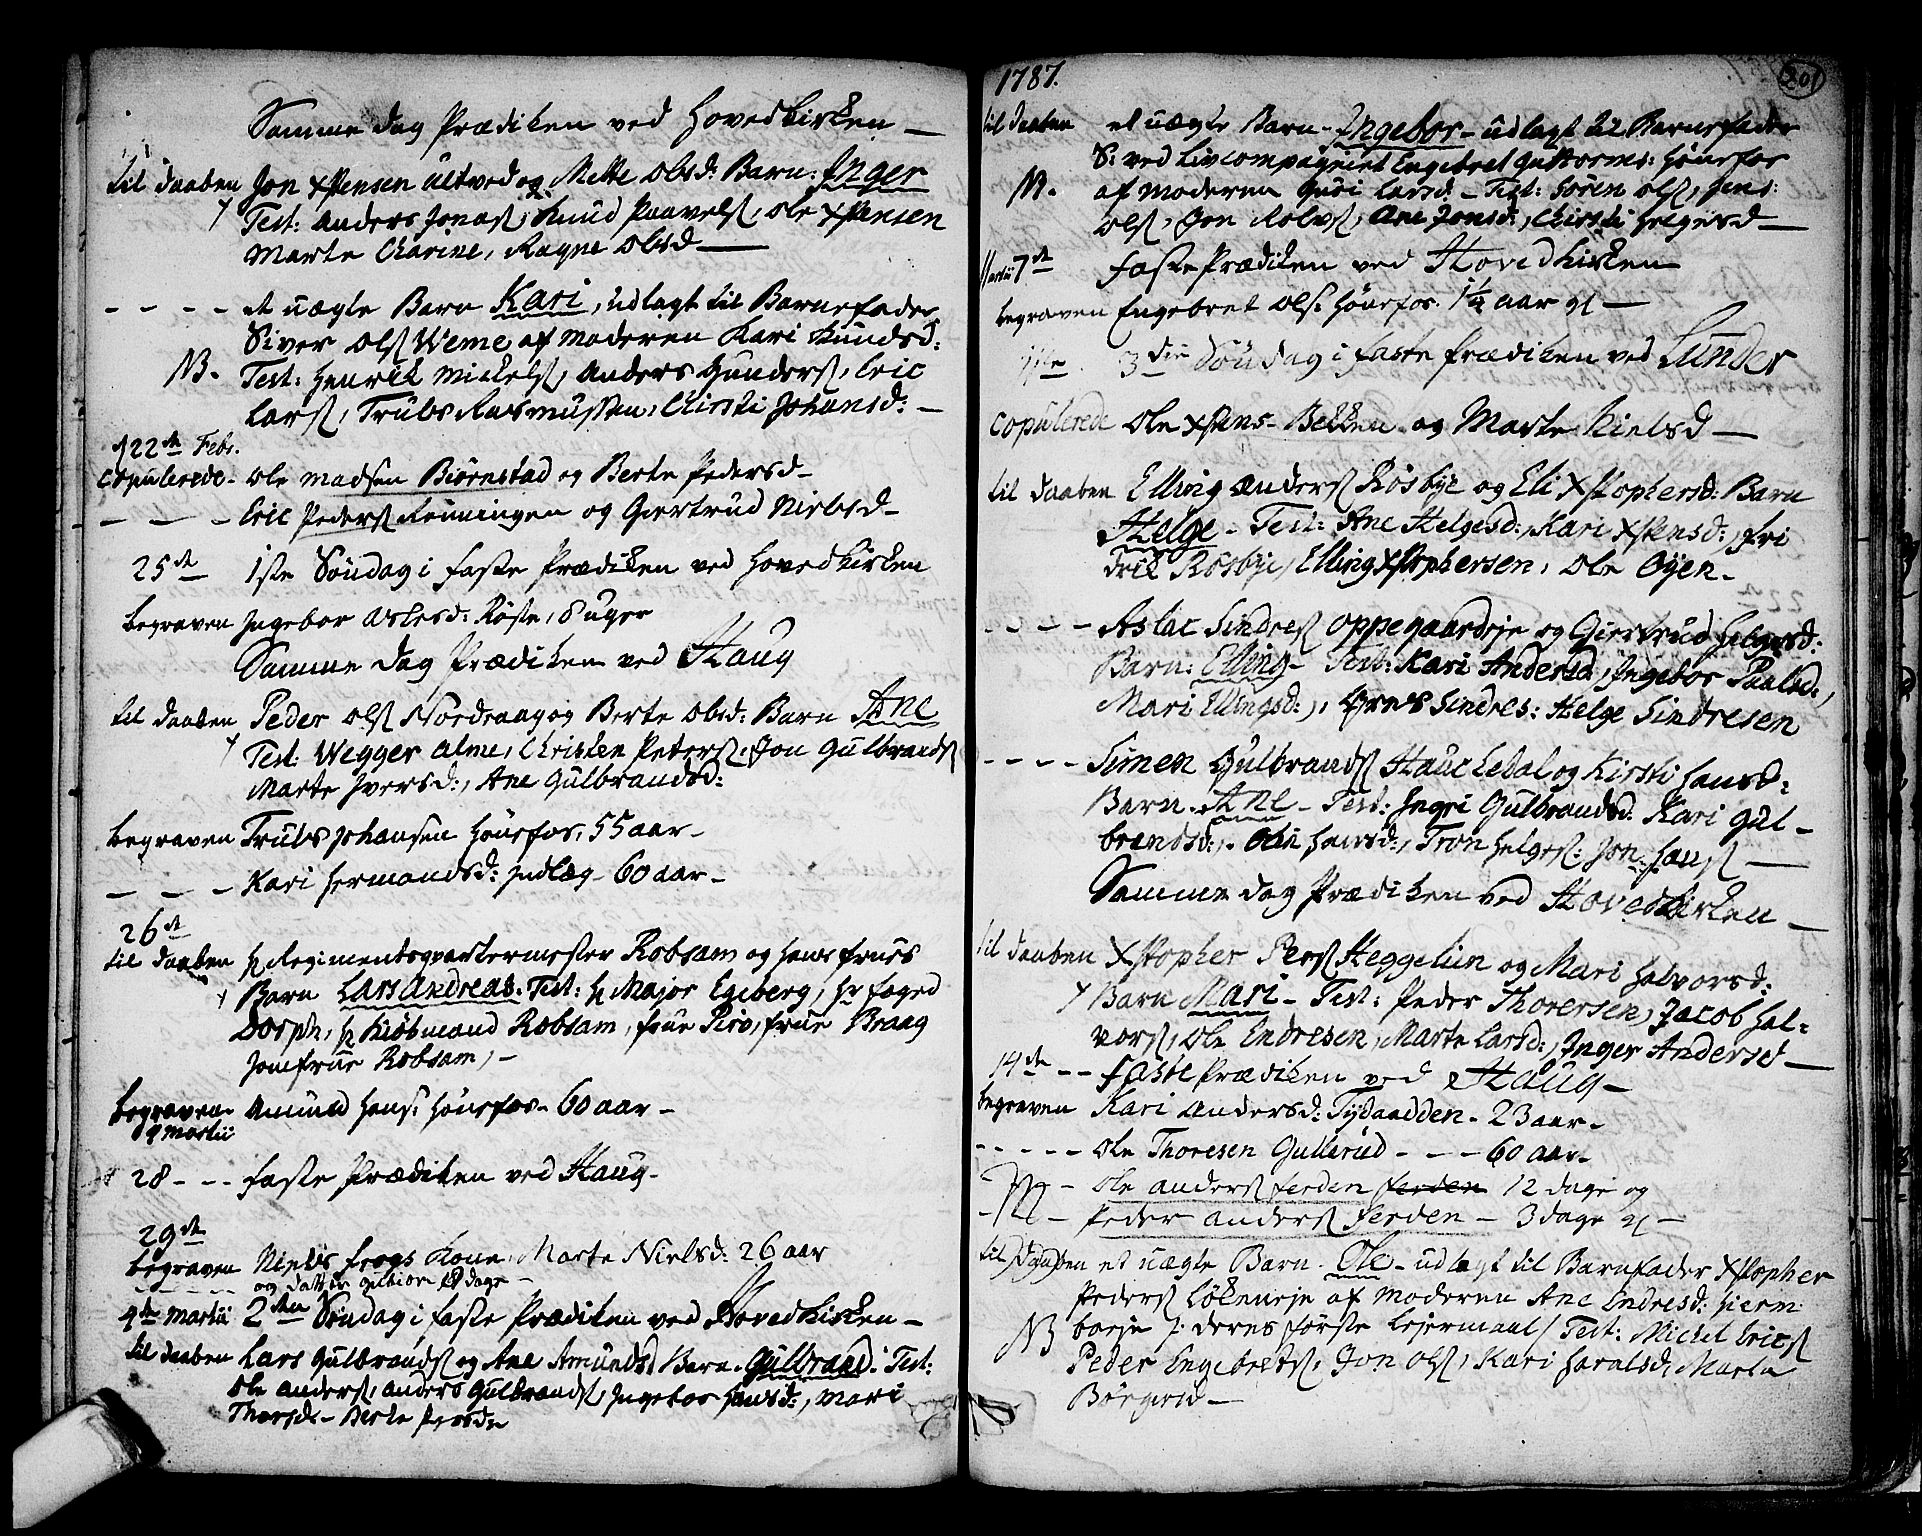 Samme dag Prædiken ved Hovedkirken —
til daaben Jon Xstensen Ultved og Mette Olsd: Barn: Inger
Test: Anders Jonas[s], Knud Paavels[s], Ole Xstensen
Marte Charine, Ragne Olsd —
- - - - et uægte Barn Kari, udlagt til Barnefader
Siver Ols[s] Weme af moderen Kari Knudsd:
NB. Test: Henrik Mickels[s], Anders Gunders[s], Eric
Lars[s], Truls Rasmussen, Chirsti Johansd: —
d 22de Febr.
Copulerede - Ole Madsen Biørnstad og Berte Pedersd -
- - - Eric Peders[s] Renningen og Giertrud Nielsd -
25de 1ste Søndag i faste Prædiken ved Hovedkirken
begraven Ingebor Aslesd: Røste, 8 uger
Samme dag Prædiken ved Haug
til daaben Peder Ols[s] Nordraag og Berte Olsd: Barn Ane
Test: Wegger Alme, Christen Peters[s], Jon Gulbrands[s]
Marte Iversd:, Ane Gulbrandsd:
begraven Truls Johansen Hønefos, 55 aar -
- - - Kari Hermandsd: Indlæg - 60 aar -
26de
til daaben hr Regimentsqvartermester Robsam og Hans frues
Barn Lars Andreas. Test: hr Major Egeberg, Hr foged
Dorph, hr Kiøbmand Robsam, frue Piro, frue Braag
Jomfrue Robsam, -
begraven Amund Hans: Hønefos - 60 aar -
9 Martii
28 - - - faste Prædiken ved Haug -
29de
begraven Niels frogs Kone, Marte Nielsd: 26 aar
- - - - - og datter 8 dage -
4de Martii 2den Søndag i faste Prædiken ved Hovedkirken -
til daaben Lars Gulbrands[s] og Ane Amundsd Barn - Gulbrand: Test:
Ole Anders[s], Anders Gulbrands[s], Ingebor Hansd:, Mari
Thorsd - Berte Persdr
1787. 201
til daaben et uægte Barn - Ingebor - udlagt til Barnefader
S: ved Livcompagniet Engebret Guttorms: Hønefos
N. af moderen Guri Larsd - Test: Søren Ols[s], Jens:
Ols[s], Jon Rolvs[s], Ane Jonsd:, Chirsti Helgesd —
Martii 7de faste Prædiken ved Hovedkirken
begraven Engebret Ols: Hønefos. 1 1/4 aar gl —
11te 3die Søndag i faste Prædiken ved Lunder
Copulerede Ole Xstens - Bekken og Marte Nielsd —
til daaben Elling Anders[s] Rosbye og Eli Xstophersd: Barn
Helge - Test: Ane Helgesd:, Kari Xstensd:, Fri
drik Rosbye, Elling Xstophersen, Ole Øyen -
- - - - Aslac Sindres[s] Oppegaardeje og Giertrud Helgesd:
Barn: Elling - Test: Kari Andersd, Ingebor Paalsd:,
Mari Ellingsd:, Sindres: Helge Sindresen
- - - - Simen Gulbrands[s] Hauc Ledal og Kirsti Hansd:
Barn - Ane - Test: Ingri Gulbrandsd: Kari Gul -
brandsd:, Hansd:, Tron Helges: Jon Hans[s] —
Samme dag Prædiken ved Hovedkirken -
til daaben Xstopher Pers[s] Heggelun og Mari Halvorsd:
Barn Mari - Test: Peder Thoresen, Jacob Hal=
vors[s], Ole Endresen, Marte Larsd:, Inger Andersd —
14de - - faste Prædiken ved Haug -
begraven Kari Andersd: Tydaadden - 23 aar -
- - - - - Ole Thoresen Gullerud - - - 60 aar -
- Ole Anders[s] Ferden ferden 12 dage og
- Peder Anders[s] Ferden - 3 dage gl -
til Daaben et uægte Barn - Ole - udlagt til Barnfader Xstopher
Peders[s] Løkeneje af Moderen Ane Endresd: Hierm
NB boeje /: deres første Lejermaal / Test: Michel Erics[s]
Peder Engebrets[s], Jon Ols[s], Kari Haralsd, Marta
Børgersd —